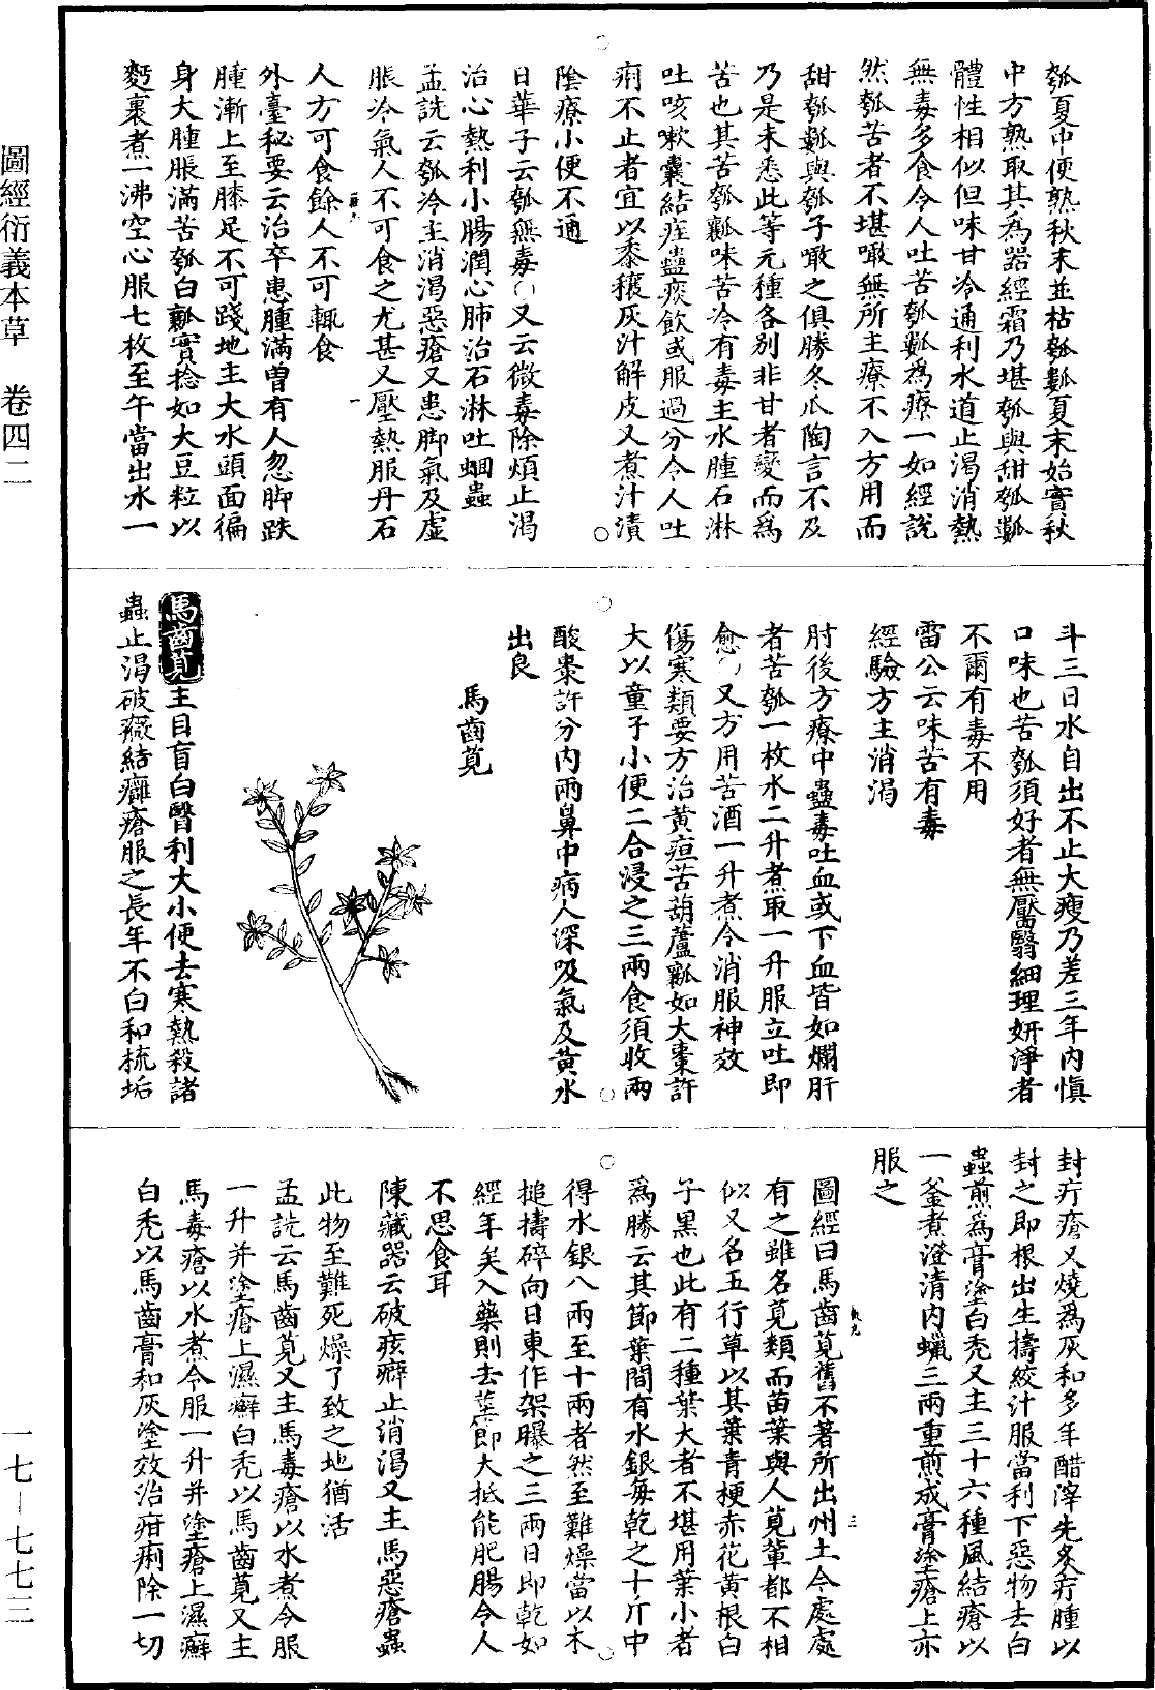 圖經衍義本草　卷四二
瓠夏中便熟秋末並枯瓠㼐夏末始實秋
中方熟取其為器經霜乃堪瓠與甜瓠㼐
體性相似但味甘冷通利水道止渴消熱
無毒多食令人吐苦瓠㼐為療一如經說
然瓠苦者不堪噉無所主療不入方用而
甜瓠㼐與瓠子噉之俱勝冬瓜陶言不及
乃是未悉此等元種各別非甘者變而為
苦也其苦瓠瓤味苦冷有毒主水腫石淋
吐咳嗽囊結疰蠱痰飲或服過分令人吐
痢不止者宜以黍穰灰汁解皮又煮汁漬
陰療小便不通
日華子云瓠無毒○又云微毒除煩止渴
治心熱利小腸潤心肺治石淋吐蛔蟲
孟詵云瓠冷主消渴惡瘡又患脚氣及虛
脹冷氣人不可食之尤甚又壓熱服丹石
人方可食餘人不可輒食
外臺秘要云治卒患腫滿曾有人忽脚趺
腫漸上至膝足不可踐地主大水頭面徧
身大腫脹滿苦瓠白瓤實捻如大豆粒以
麪裹煮一沸空心服七枚至午當出水一
斗三日水自出不止大瘦乃差三年內慎
口味也苦瓠須好者無黶翳細理妍淨者
不爾有毒不用
雷公云味苦有毒
經驗方主消渴
肘後方療中蠱毒吐血或下血皆如爛肝
者苦瓠一枚水二升煮取一升服立吐即
愈○又方用苦酒一升煮令消服神效
傷寒類要方治黃疸苦葫蘆瓤如大棗許
大以童子小便二合浸之三兩食須收兩
酸棗許分內兩鼻中病人深吸氣及黃水
出良
馬齒莧
馬齒莧主目盲白瞖利大小便去寒熱殺諸
蟲止渴破癥結癰瘡服之長年不白和梳垢
封疔瘡又燒為灰和多年醋滓先炙疔腫以
封之即根出生擣絞汁服當利下惡物去白
蟲煎為膏塗白禿又主三十六種風結瘡以
一釜煮澄清內蠟三兩重煎成膏塗瘡上亦
服之
圖經曰馬齒莧舊不著所出州土今處處
有之雖名莧類而苗葉與人莧輩都不相
似又名五行草以其葉青梗赤花黃根白
子黑也此有二種葉大者不堪用葉小者
為勝云其節葉間有水銀每乾之十斤中
得水銀八兩至十兩者然至難燥當以木
搥擣碎向日東作架曝之三兩日即乾如
經年矣入藥則去莖節大抵能肥腸令人
不思食耳
陳藏器云破痃癖止消渴又主馬惡瘡蟲
此物至難死燥了致之地猶活
孟詵云馬齒莧又主馬毒瘡以水煮令服
一升并塗瘡上濕癬白禿以馬齒莧又主
馬毒瘡以水煮令服一升并塗瘡上濕癬
白禿以馬齒膏和灰塗效治疳痢除一切
一七－七七三